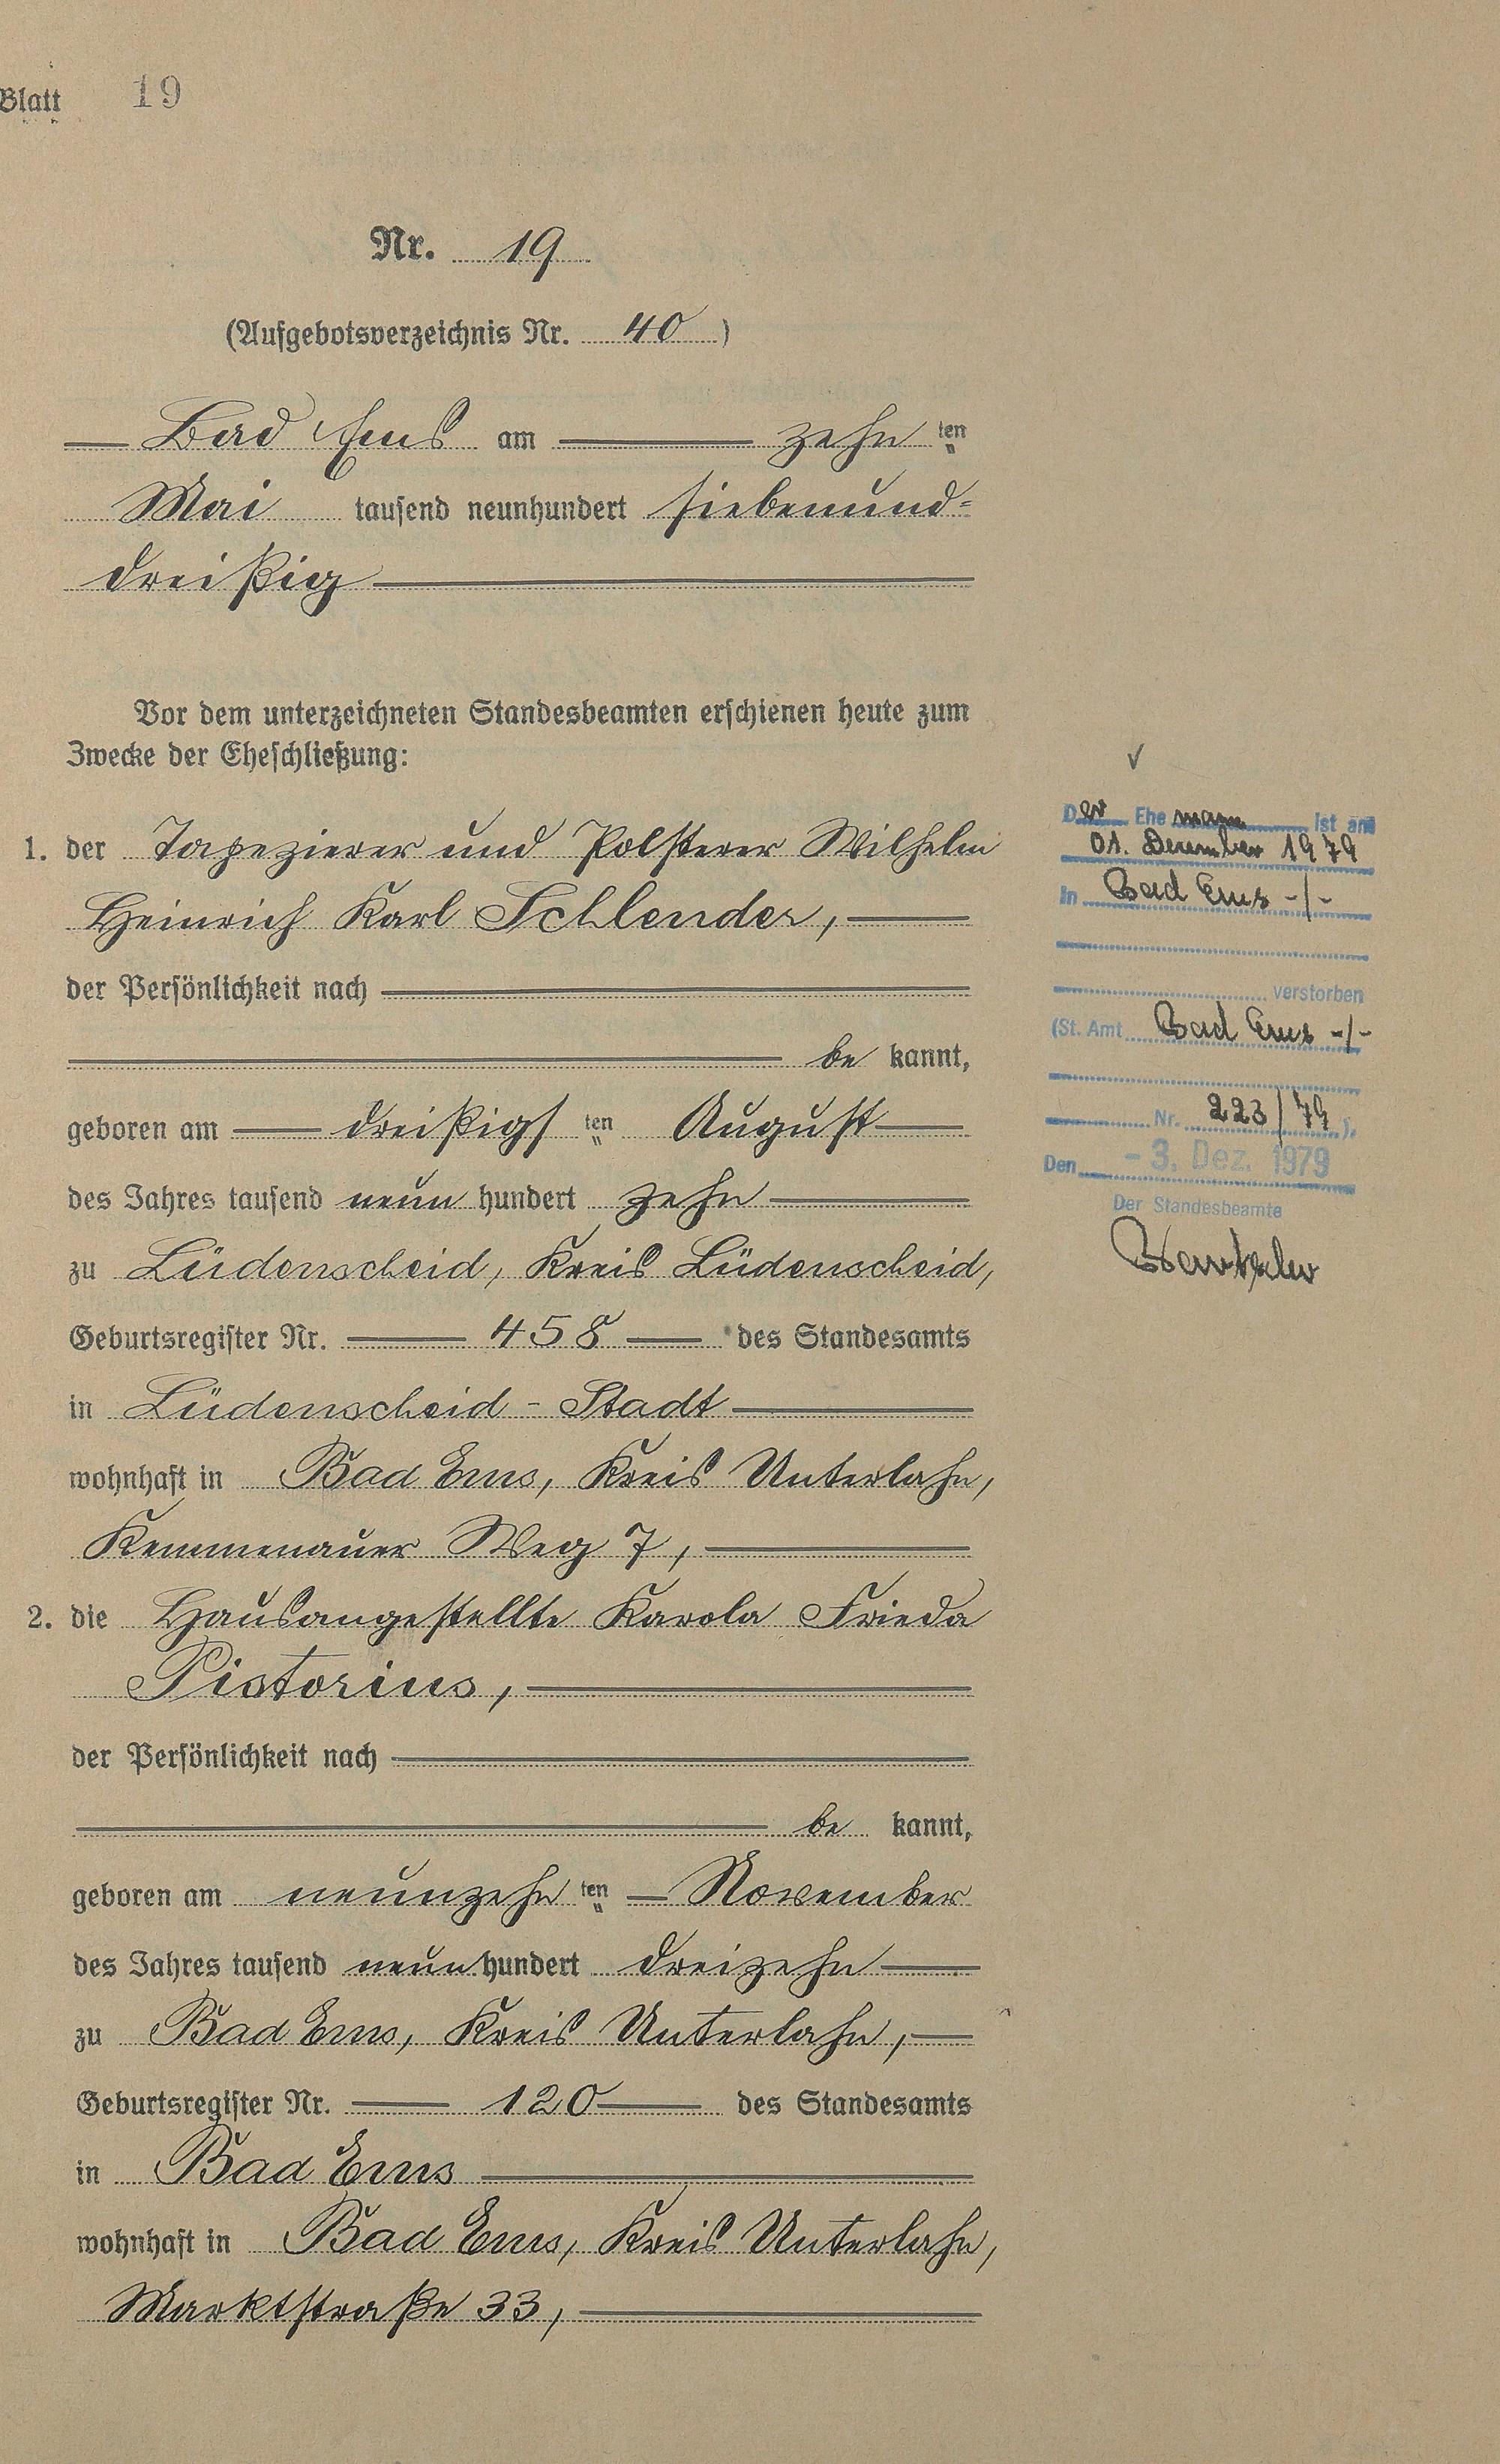 Blatt 19
Nr. 19
(Aufgebotsverzeichnis Nr. 40)
Bad Ems am zehn ten
Mai tausend neunhundert siebenund-
dreißig
Vor dem unterzeichneten Standesbeamten erschienen heute zum
Zwecke der Eheschließung:
1. der Tapezierer und Polsterer Wilhelm
Heinrich Karl Schlender,
der Persönlichkeit nach
be kannt,
geboren am dreißigs ten August
des Jahres tausend neun hundert zehn
zu Lüdenscheid, Kreis Lüdenscheid,
Geburtsregister Nr. 458 des Standesamts
in Lüdenscheid - Stadt
wohnhaft in Bad Ems, Kreis Unterlahn,
Kemmenauer Weg 7,
2. die Hausangestellte Karola Frieda
Pistorius,
der Persönlichkeit nach
be kannt,
geboren am neunzehn ten November
des Jahres tausend neun hundert dreizehn
zu Bad Ems, Kreis Unterlahn,
Geburtsregister Nr. 120 des Standesamts
in Bad Ems
wohnhaft in Bad Ems, Kreis Unterlahn,
Marktstraße 33,
Der Ehemann ist am
01. Dezember 1979
in Bad Ems -/-
verstorben
(St. Amt Bad Ems -/-
Nr. 223/79).
Den - 3. Dez. 1979
Der Standesbeamte